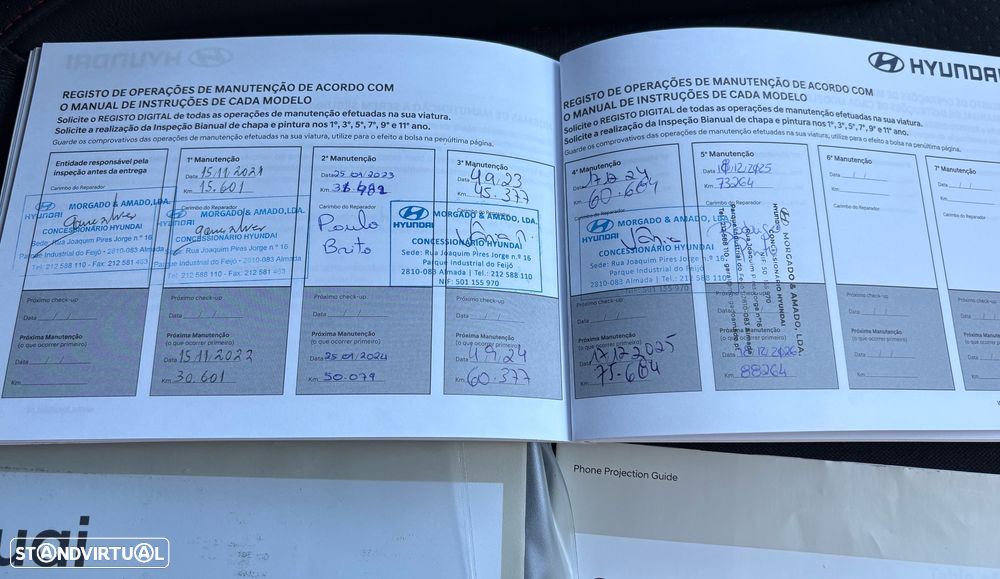 HYUNDAI
REGISTO DE OPERAÇÕES DE MANUTENÇÃO DE ACORDO COM
O MANUAL DE INSTRUÇÕES DE CADA MODELO
Solicite o REGISTO DIGITAL de todas as operações de manutenção efetuadas na sua viatura.
Solicite a realização da Inspeção Bianual de chapa e pintura nos 1º, 3º, 5º, 7º, 9º e 11º ano.
Guarde os comprovativos das operações de manutenção efetuadas na sua viatura, utilize para o efeito a bolsa na penúltima página.
Entidade responsável pela
inspeção antes da entrega
Carimbo do Reparador
HYUNDAI
MORGADO & AMADO, LDA.
CONCESSIONÁRIO HYUNDAI
Sede: Rua Joaquim Pires Jorge n.º 16
Parque Industrial do Feijó - 2810-083 Almada
Tel: 212 588 110 - Fax: 212 581 463
Próximo check-up
Data
Km
Próxima Manutenção
(o que ocorrer primeiro)
Data
Km
1ª Manutenção
Data 15.11.2021
Km 15.601
Carimbo do Reparador
HYUNDAI
MORGADO & AMADO, LDA.
CONCESSIONÁRIO HYUNDAI
Sede: Rua Joaquim Pires Jorge n.º 16
Parque Industrial do Feijó - 2810-083 Almada
Tel: 212 588 110 - Fax: 212 581 463
Próximo check-up
Data
Próxima Manutenção
(o que ocorrer primeiro)
Data 15.11.2022
Km 30.601
2ª Manutenção
Data 25 01/2023
Km
Carimbo do Reparador
Paulo
Brito
Próximo check-up
Data
Próxima Manutenção
(o que ocorrer primeiro)
Data 25 01/2024
Km 50.079
3ª Manutenção
Data 4.9.23
Km 45.377
Carimbo do Reparador
HYUNDAI
MORGADO & AMADO, LDA.
CONCESSIONÁRIO HYUNDAI
Sede: Rua Joaquim Pires Jorge n.º 16
Parque Industrial do Feijó
2810-083 Almada | Tel.: 212 588 110
NIF: 501 155 970
Próximo check-up
Data
Próxima Manutenção
(o que ocorrer primeiro)
Data 4.9.24
Km 60.377
HYUNDAI
REGISTO DE OPERAÇÕES DE MANUTENÇÃO DE ACORDO COM
O MANUAL DE INSTRUÇÕES DE CADA MODELO
Solicite o REGISTO DIGITAL de todas as operações de manutenção efetuadas na sua viatura.
Solicite a realização da Inspeção Bianual de chapa e pintura nos 1º, 3º, 5º, 7º, 9º e 11º ano.
Guarde os comprovativos das operações de manutenção efetuadas na sua viatura, utilize para o efeito a bolsa na penúltima página.
4ª Manutenção
Data
Km 60.664
Carimbo do Reparador
HYUNDAI
MORGADO & AMADO, LDA.
CONCESSIONÁRIO HYUNDAI
Sede: Rua Joaquim Pires Jorge n.º 16
Parque Industrial do Feijó
2810-083 Almada | Tel.: 212 588 110
NIF: 501 155 970
Próximo check-up
Data
Próxima Manutenção
(o que ocorrer primeiro)
Data 17.12.2025
Km 75.664
5ª Manutenção
Data /12/2025
Km 73264
Carimbo do Reparador
MORGADO & AMADO, LDA.
CONCESSIONÁRIO HYUNDAI
Próximo check-up
Próxima Manutenção
(o que ocorrer primeiro)
Data /12/2026
Km 88264
6ª Manutenção
Data
Km
Carimbo do Reparador
Próximo check-up
Data
Km
Próxima Manutenção
(o que ocorrer primeiro)
Data
Km
7ª Manutenção
Data
Km
Carimbo do Reparador
Próximo check-up
Data
Km
Próxima Manutenção
(o que ocorrer primeiro)
Data
Km
Phone Projection Guide
STANDVIRTUAL